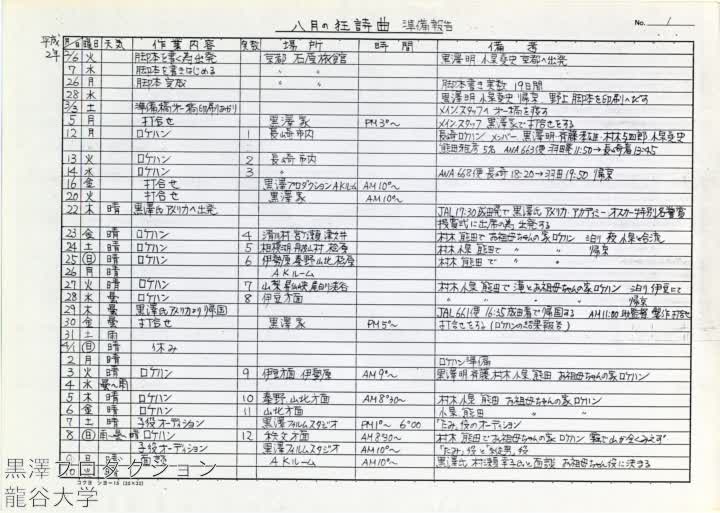 八月の狂詩曲 準備報告 No. 1
平成2年 月/日 曜日 天気 作業内容 実数 場所 時間 備考
2/6 火 脚本を書く為出発 京都 石原旅館 黒澤明 小泉堯史 京都へ出発
7 水 脚本を書きはじめる 〃 〃
26 月 脚本完成 〃 〃 脚本書き実数 19日間
28 水 黒澤明 小泉堯史 帰京 野上 脚本を印刷へ
3/3 土 準備稿 印刷あがり メインスタッフへ
5 月 打合せ 黒澤家 PM3°〜 メインスタッフ 黒澤家で打合せをする
12 月 ロケハン 1 長崎市内 長崎ロケハン メンバー 黒澤明 斉藤 村木与四郎 小泉堯史
熊田雅彦 5名 ANA 663便 羽田 11:50→長崎着 13:45
13 火 ロケハン 2 長崎市内
14 水 ロケハン 3 〃 ANA 668便 長崎 18:20→羽田 19:50 帰京
16 金 打合せ 黒澤プロダクションAKルーム AM10°〜
20 火 打合せ 黒澤家 AM10°〜
22 木 晴 黒澤氏アメリカへ出発 JAL 17:30成田発で黒澤氏 アメリカ・アカデミー・オスカー特別名誉賞
授賞式に出席の為 出発する
23 金 晴 ロケハン 4 村木 熊田で お祖母ちゃんの家ロケハン 泊り 小泉と合流
24 土 晴 ロケハン 5 相模湖 村木 小泉 熊田で 〃 〃 帰京
25 (日) 晴 ロケハン 6 伊勢原 秦野 山北 松田 村木 熊田で 〃 〃
26 月 晴 AKルーム
27 火 晴 ロケハン 7 山梨 村木 小泉 熊田で 滝とお祖母ちゃんの家ロケハン 泊り 伊豆にて
28 水 曇 ロケハン 8 伊豆方面 〃 〃 〃 〃 〃 帰京
29 木 曇 黒澤氏アメリカより帰国 JAL 661便 16:45成田着で帰国する AM11:00
30 金 曇 打合せ 黒澤家 PM5°〜 打合せをする (ロケハンの結果報告)
31 土 雨
4/1 (日) 晴 休み
2 月 晴 ロケハン準備
3 火 晴 ロケハン 9 伊豆方面 伊勢原 AM9°〜 黒澤明 斉藤 村木 小泉 熊田 お祖母ちゃんの家ロケハン
4 水 曇〜雨
5 木 晴 ロケハン 10 秦野 山北方面 AM8°30〜 村木 小泉 熊田 お祖母ちゃんの家ロケハン
6 金 晴 ロケハン 11 山北方面 小泉 熊田 〃 〃
7 土 晴 子役オーディション 黒澤フィルムスタジオ PM1°〜 6°00 「たみ」役 オーディション
8 (日) 雨〜曇〜晴 ロケハン 12 秩父方面 村木 熊田でお祖母ちゃんの家ロケハン 霧で山が全くみえず
子役オーディション 黒澤フィルムスタジオ AM10°〜
9 月 面談 AKルーム AM10°〜 黒澤氏 村瀬幸子氏と面談 お祖母ちゃん役に決まる
10
黒澤プロダクション
龍谷大学